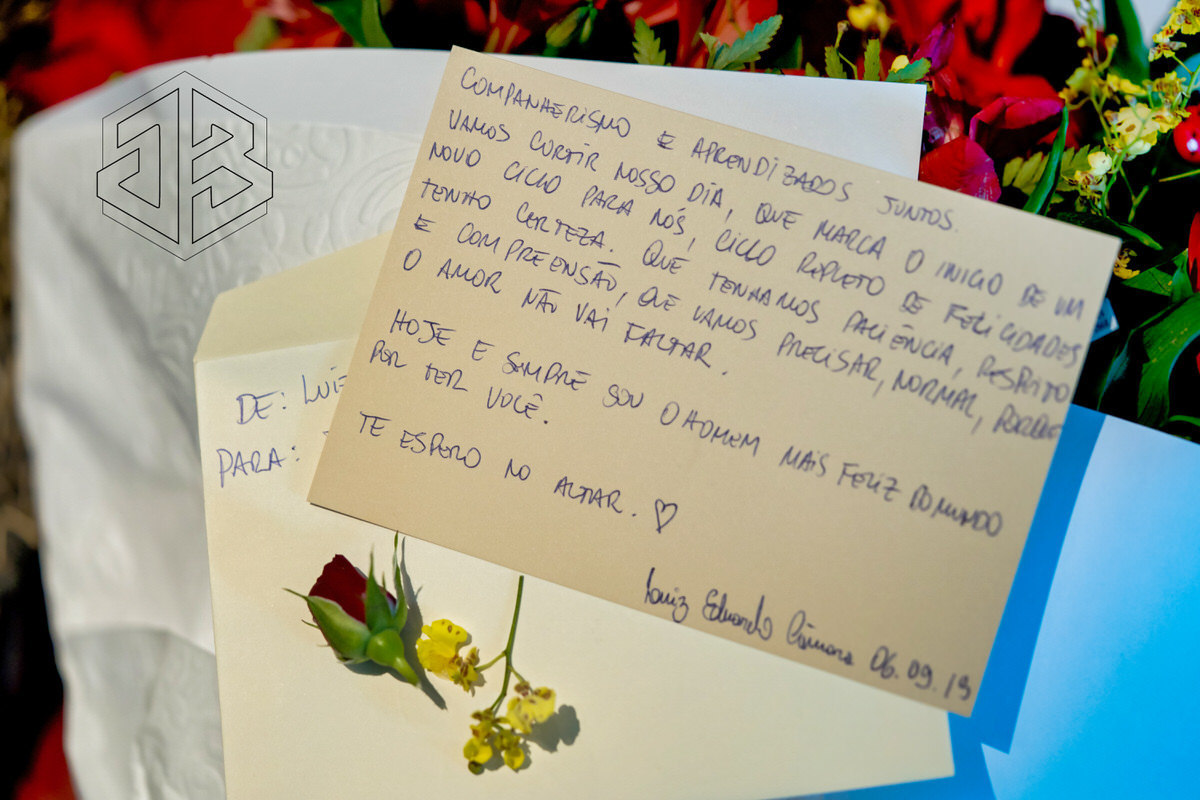 COMPANHERISMO E APRENDIZADOS JUNTOS.
VAMOS CURTIR NOSSO DIA, QUE MARCA O INICIO DE UM
NOVO CICLO PARA NÓS, CICLO REPLETO DE FELICIDADES
TENHO CERTEZA. QUE TENHAMOS PACIÊNCIA, RESPEITO
E COMPREENSÃO, QUE VAMOS PRECISAR, NORMAL, PORQUE
O AMOR NÃO VAI FALTAR.
HOJE E SEMPRE SOU O HOMEM MAIS FELIZ DO MUNDO
POR TER VOCÊ.
TE ESPERO NO ALTAR. ♡
Luiz Eduardo Câmara 06.09.19
DE: LUIZ
PARA:
JB